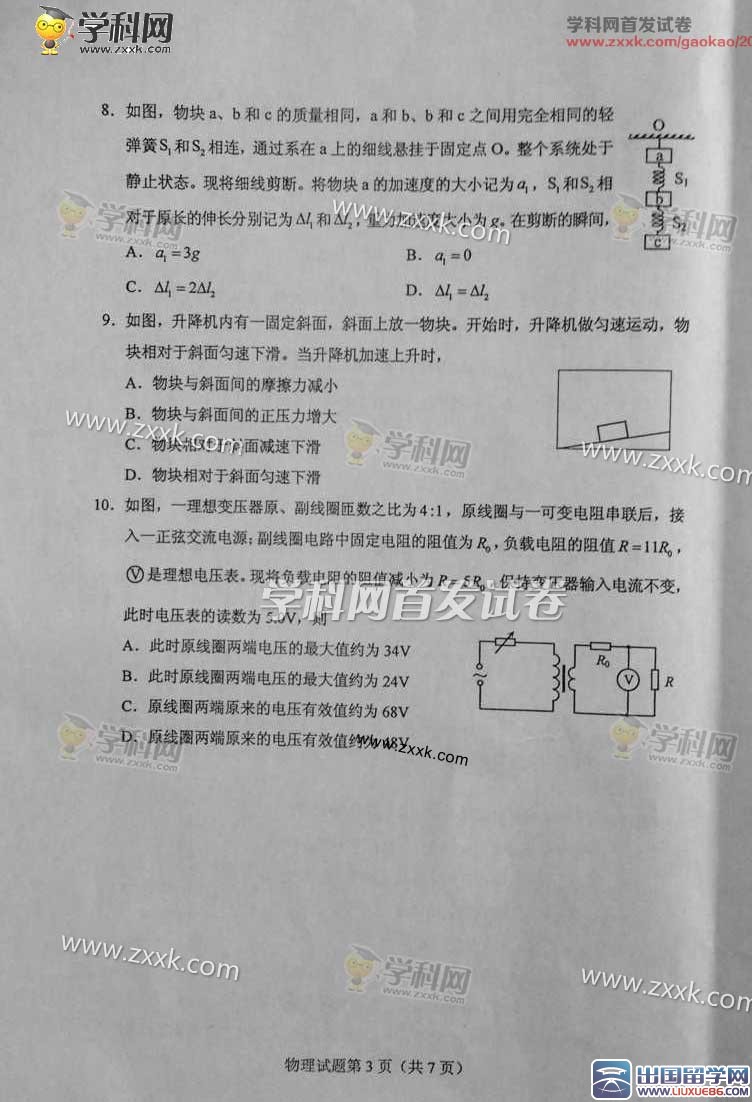 学科网
www.zxxk.com
学科网首发试卷
www.zxxk.com/gaokao/20
8. 如图，物块 a、b 和 c 的质量相同，a 和 b、b 和 c 之间用完全相同的轻
弹簧 S₁ 和 S₂ 相连，通过系在 a 上的细线悬挂于固定点 O。整个系统处于
静止状态。现将细线剪断。将物块 a 的加速度的大小记为 a₁，S₁ 和 S₂ 相
对于原长的伸长分别记为 Δl₁ 和 Δl₂，重力加速度大小为 g。在剪断的瞬间，
A. a₁=3g
B. a₁=0
C. Δl₁=2Δl₂
D. Δl₁=Δl₂
O
a
S₁
b
S₂
c
www.zxxk.com
9. 如图，升降机内有一固定斜面，斜面上放一物块。开始时，升降机做匀速运动，物
块相对于斜面匀速下滑。当升降机加速上升时，
A. 物块与斜面间的摩擦力减小
B. 物块与斜面间的正压力增大
C. 物块相对于斜面减速下滑
D. 物块相对于斜面匀速下滑
www.zxxk.com
学科网
zxxk.com
www.zxxk.com
10. 如图，一理想变压器原、副线圈匝数之比为 4:1，原线圈与一可变电阻串联后，接
入一正弦交流电源；副线圈电路中固定电阻的阻值为 R₀，负载电阻的阻值 R=11R₀，
Ⓥ是理想电压表。现将负载电阻的阻值减小为 R=5R₀，保持变压器输入电流不变，
此时电压表的读数为 5.0V，则
学科网首发试卷
A. 此时原线圈两端电压的最大值约为 34V
B. 此时原线圈两端电压的最大值约为 24V
C. 原线圈两端原来的电压有效值约为 68V
D. 原线圈两端原来的电压有效值约为 48V
R₀
V
R
学科网
zxxk.com
www.zxxk.com
学科网
zxxk.com
www.zxxk.com
学科网
zxxk.com
www.zxxk.com
物理试题第 3 页（共 7 页）
出国留学网
www.liuxue86.com